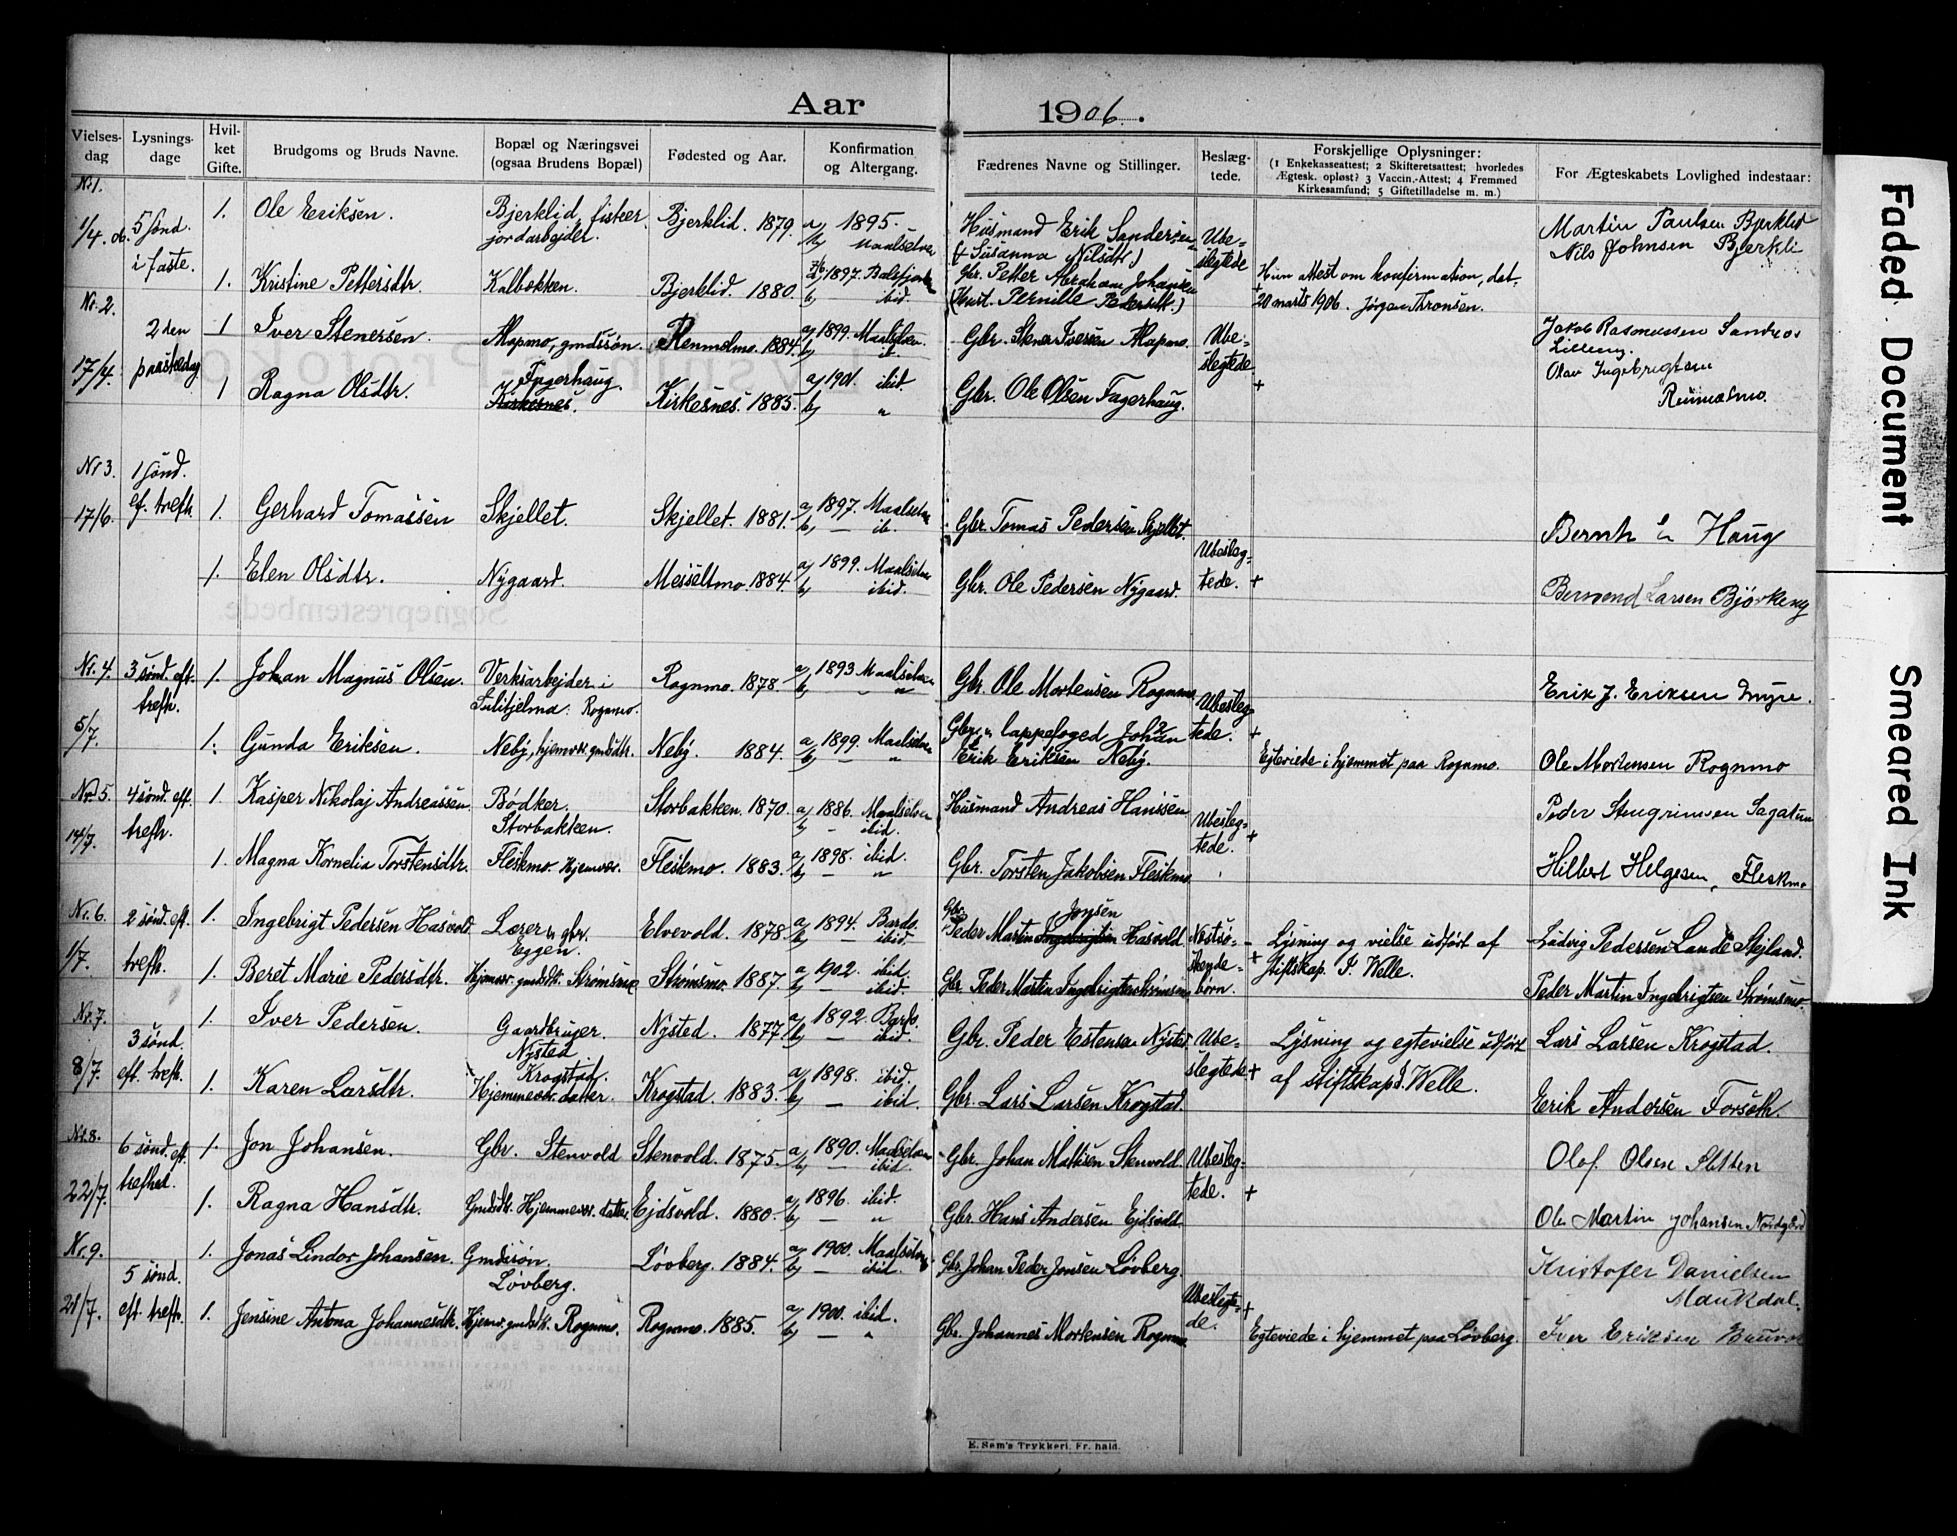 Aar 1906.
Vielses-dag
Lysnings-dage
Hvil-ket Gifte.
Brudgoms og Bruds Navne.
Bopæl og Næringsvei (ogsaa Brudens Bopæl)
Fødested og Aar.
Konfirmation og Altergang.
Fædrenes Navne og Stillinger.
Beslæg-tede.
Forskjellige Oplysninger:
(1 Enkekasseattest; 2 Skifteretsattest; hvorledes
Ægtesk. opløst? 3 Vaccin.-Attest; 4 Fremmed
Kirkesamfund; 5 Giftetilladelse m. m.)
For Ægteskabets Lovlighed indestaar:
Nr 1.
1/4. 06. 5 sønd. i faste.
1. Ole Eriksen. Bjerklid, fisker, jordarbejder. Bjerklid. 1879. a) 1895. b) Maalselven
Husmand Erik Sandersen
(& Susanna Nilsdtr) Ube-slegtede
Martin Paulsen Bjerklid
Nils Johnsen Bjerkli
1. Kristine Pettersdtr Kalbakken. Bjerklid. 1880. a) 1897. Balsfjorden b) ibid.
Gbr. Petter Abraham Johansen
(Hust. Pernille Pedersdtr.)
+ Hun attest om konfirmation, dat.
20 marts 1906. Jørgen Thronsen.
Nr. 2.
17/4. 2den paaskedag
1 Iver Stenersen. Alapmo, gmdssøn. Renmelmo. 1884. a) 1899. Maalselven. b) ib.
Gbr. Stener Iversen Alapmo. Ube-slegtede +
Jakob Rasmussen Sandnes
Olav Ingebrigtsen
1 Ragna Olsdtr. Fagerhaug. Kirkesnes. Kirkesnes. 1885 a) 1901. ibid. b) "
Gbr. Ole Olsen Fagerhaug.
Nr 3.
17/6. 1 sønd. ef. trefh.
1. Gerhard Tomassen Skjellet. Skjellet. 1881. a) 1897. Maalselven b) — ib.
Gbr. Tomas Pedersen Skjellet.
Bernh E Haug
1. Elen Olsdtr. Nygaard. Messeltmo. 1884. a) 1899. Maalselven b) ibid.
Gbr. Ole Pedersen Nygaard. Ubesleg-tede. +
Larsen Bjørkeng
Nr. 4.
5/7. 3 sønd. eft. trefh.
1. Johan Magnus Olsen. Verksarbejder i Sulitjelma. Rognmo. Rognmo. 1878. a) 1893 Maalselven b) — "
Gbr. Ole Mortensen Rognmo Ubesleg-tede. +
Erik J. Eriksen Myre.
1. Gunda Eriksen. Neby, hjemvær. gmdsdtr. Neby. 1884. a) 1899. Maalselven b) — "
Gbr. & lappefoged Johan
Erik Eriksen Neby.
Egteviede i hjemmet paa Rognmo. Ole Mortensen Rognmo
Nr. 5.
14/7. 4 sønd. eft. trefh.
1. Kasper Nikolaj Andreassen. Bødker. Storbakken. Storbakken. 1870. a) 1886. Maalselven b) — ibid.
Husmand Andreas Hanssen Ubesleg-tede. +
Peder Steingrimsen Sagatun
1. Magna Kornelia Torstensdtr. Fleskmo. Hjemvær. Fleskmo. 1883. a) 1898. ibid. b) — "
Gbr. Torsten Jakobsen Fleskmo
Hilbert Helgesen, Fleskmo
Nr. 6.
1/7. 2 sønd. eft. trefh.
1. Ingebrigt Pedersen Hasvold Lærer & gbr. Eggen. Elvevold. 1878. a) 1894. Bardo. b) — ibid.
Gbr. Peder Martin Ingebrigtsen Jonsen Hasvold Nestsø-skende-børn. +
Lysning og vielse udført af
stiftskap. J. Welle.
Ludvig Pedersen Lande Stejland.
1. Beret Marie Pedersdtr. Hjemvær. gmdsdtr. Strømsmo Strømsmo 1887. a) 1902. ibid. b) — ibid.
Gbr. Peder Martin Ingebrigtsen Strømsmo
Peder Martin Ingebrigtsen Strømsmo.
Nr. 7.
8/7. 3 sønd. eft. trefh.
1. Iver Pedersen. Gaardbruger. Nysted Nysted. 1877. a) 1892. Bardo. b) — ibid.
Gbr. Peder Estensen Nysted. Ube-slegtede +
Lysning og egtevielse udført
af stiftskap J. Welle.
Lars Larsen Krogstad.
1. Karen Larsdtr. Krogstad. Hjemmevær. datter. Krogstad. 1883. a) 1898. ibid. b) — ibid.
Gbr. Lars Larsen Krogstad.
Erik Andersen Forseth.
Nr. 8.
22/7. 6 sønd. ef. trefhed.
1. Jon Johansen. Gbr. Stenvold Stenvold. 1875. a) 1890. Maalselven b) — ibid.
Gbr. Johan Mattisen Stenvold. Ubesleg-tede. +
Olof Olsen Sletten
1. Ragna Hansdtr. Gmdsdtr. Hjemmevær. datter. Ejdsvold. 1880. a) 1896. ibid. b) — "
Gbr. Hans Andersen Ejdsvold
Ole Martin Johansen Nordgård
Nr. 9.
21/7. 5 sønd. eft. trefh.
1. Jonas Lindor Johansen. Gmdssøn. Løvberg. Løvberg. 1884. a) 1900. Maalselven b) — ibid.
Gbr. Johan Peder Jonsen Løvberg. Ubeslegte-de. +
Kristofer Danielsen
Maukdal.
1. Jensine Antona Johannesdtr. Hjemv. gmdsdtr. Rognmo. Rognmo. 1885. a) 1900. ibid. b) — "
Gbr. Johannes Mortensen Rognmo
Egteviede i hjemmet paa Løvberg. Iver Eriksen
E. Sem's Trykkeri, Fr. hald.
Faded Document
Smeared Ink